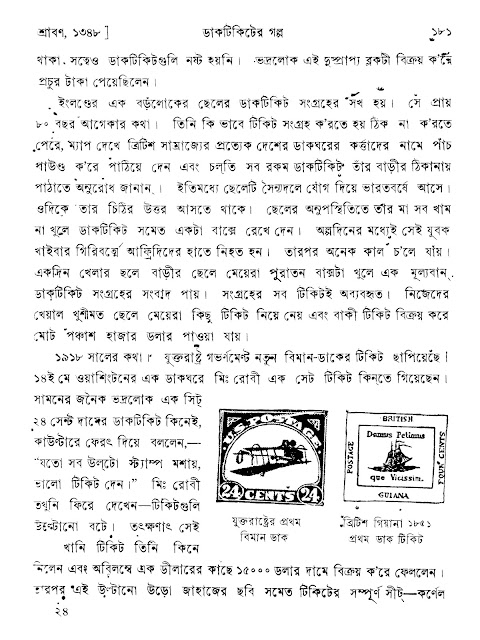 শ্রাবণ, ১৩৪৮ ] ডাকটিকিটের গল্প ১৮১
থাকা সত্বেও ডাকটিকিটগুলি নষ্ট হয়নি। ভদ্রলোক এই দুষ্প্রাপ্য ব্লকটী বিক্রয় ক'রে
প্রচুর টাকা পেয়েছিলেন।
ইংলণ্ডের এক বড়লোকের ছেলের ডাকটিকিট সংগ্রহের সখ হয়। সে প্রায়
৮০ বছর আগেকার কথা। তিনি কি ভাবে টিকিট সংগ্রহ ক'রতে হয় ঠিক না ক'রতে
পেরে, ম্যাপ দেখে ব্রিটিশ সাম্রাজ্যের প্রত্যেক দেশের ডাকঘরের কর্ত্তাদের নামে পাঁচ
পাউণ্ড ক'রে পাঠিয়ে দেন এবং চল্‌তি সব রকম ডাকটিকিট তাঁর বাড়ীর ঠিকানায়
পাঠাতে অনুরোধ জানান। ইতিমধ্যে ছেলেটি সৈন্যদলে যোগ দিয়ে ভারতবর্ষে আসে।
ওদিকে তার চিঠির উত্তর আসতে থাকে। ছেলের অনুপস্থিতিতে তাঁর মা সব খাম
না খুলে ডাকটিকিট সমেত একটা বাক্সে রেখে দেন। অল্পদিনের মধ্যেই সেই যুবক
খাইবার গিরিবর্ত্মে আফ্রিদিদের হাতে নিহত হন। তারপর অনেক কাল চ'লে যায়।
একদিন খেলার ছলে বাড়ীর ছেলে মেয়েরা পুরাতন বাক্সটা খুলে এক মূল্যবান
ডাকটিকিট সংগ্রহের সংবাদ পায়। সংগ্রহের সব টিকিটই অব্যবহৃত। নিজেদের
খেয়াল খুশীমত ছেলে মেয়েরা কিছু টিকিট নিয়ে নেয় এবং বাকী টিকিট বিক্রয় করে
মোট পঞ্চাশ হাজার ডলার পাওয়া যায়।
১৯১৮ সালের কথা। যুক্তরাষ্ট্র গভর্ণমেন্ট নতুন বিমান-ডাকের টিকিট ছাপিয়েছে।
১৪ই মে ওয়াশিংটনের এক ডাকঘরে মিঃ রোবী এক সেট টিকিট কিনতে গিয়েছেন।
সামনের জনৈক ভদ্রলোক এক সিট্
২৪ সেন্ট দামের ডাকটিকিট কিনেই,
কাউন্টারে ফেরৎ দিয়ে বললেন,—
"যতো সব উল্‌টো স্ট্যাম্প মশায়,
ভালো টিকিট দেন।" মিঃ রোবী
তখুনি ফিরে দেখেন—টিকিটগুলি
উল্টোনো বটে। তৎক্ষণাৎ সেই
খানি টিকিট তিনি কিনে
U·S·POSTAGE
24 CENTS 24
যুক্তরাষ্ট্রের প্রথম
বিমান ডাক
BRITISH
POSTAGE
Damus Petimus
que Vicissim.
FOUR CENTS
GUIANA
ব্রিটিশ গিয়ানা ১৮৫১
প্রথম ডাক টিকিট
নিলেন এবং অবিলম্বে এক ডীলারের কাছে ১৫০০০ ডলার দামে বিক্রয় ক'রে ফেললেন।
তারপর এই উল্টানো উড়ো জাহাজের ছবি সমেত টিকিটের সম্পূর্ণ সীট—কর্ণেল
২৪